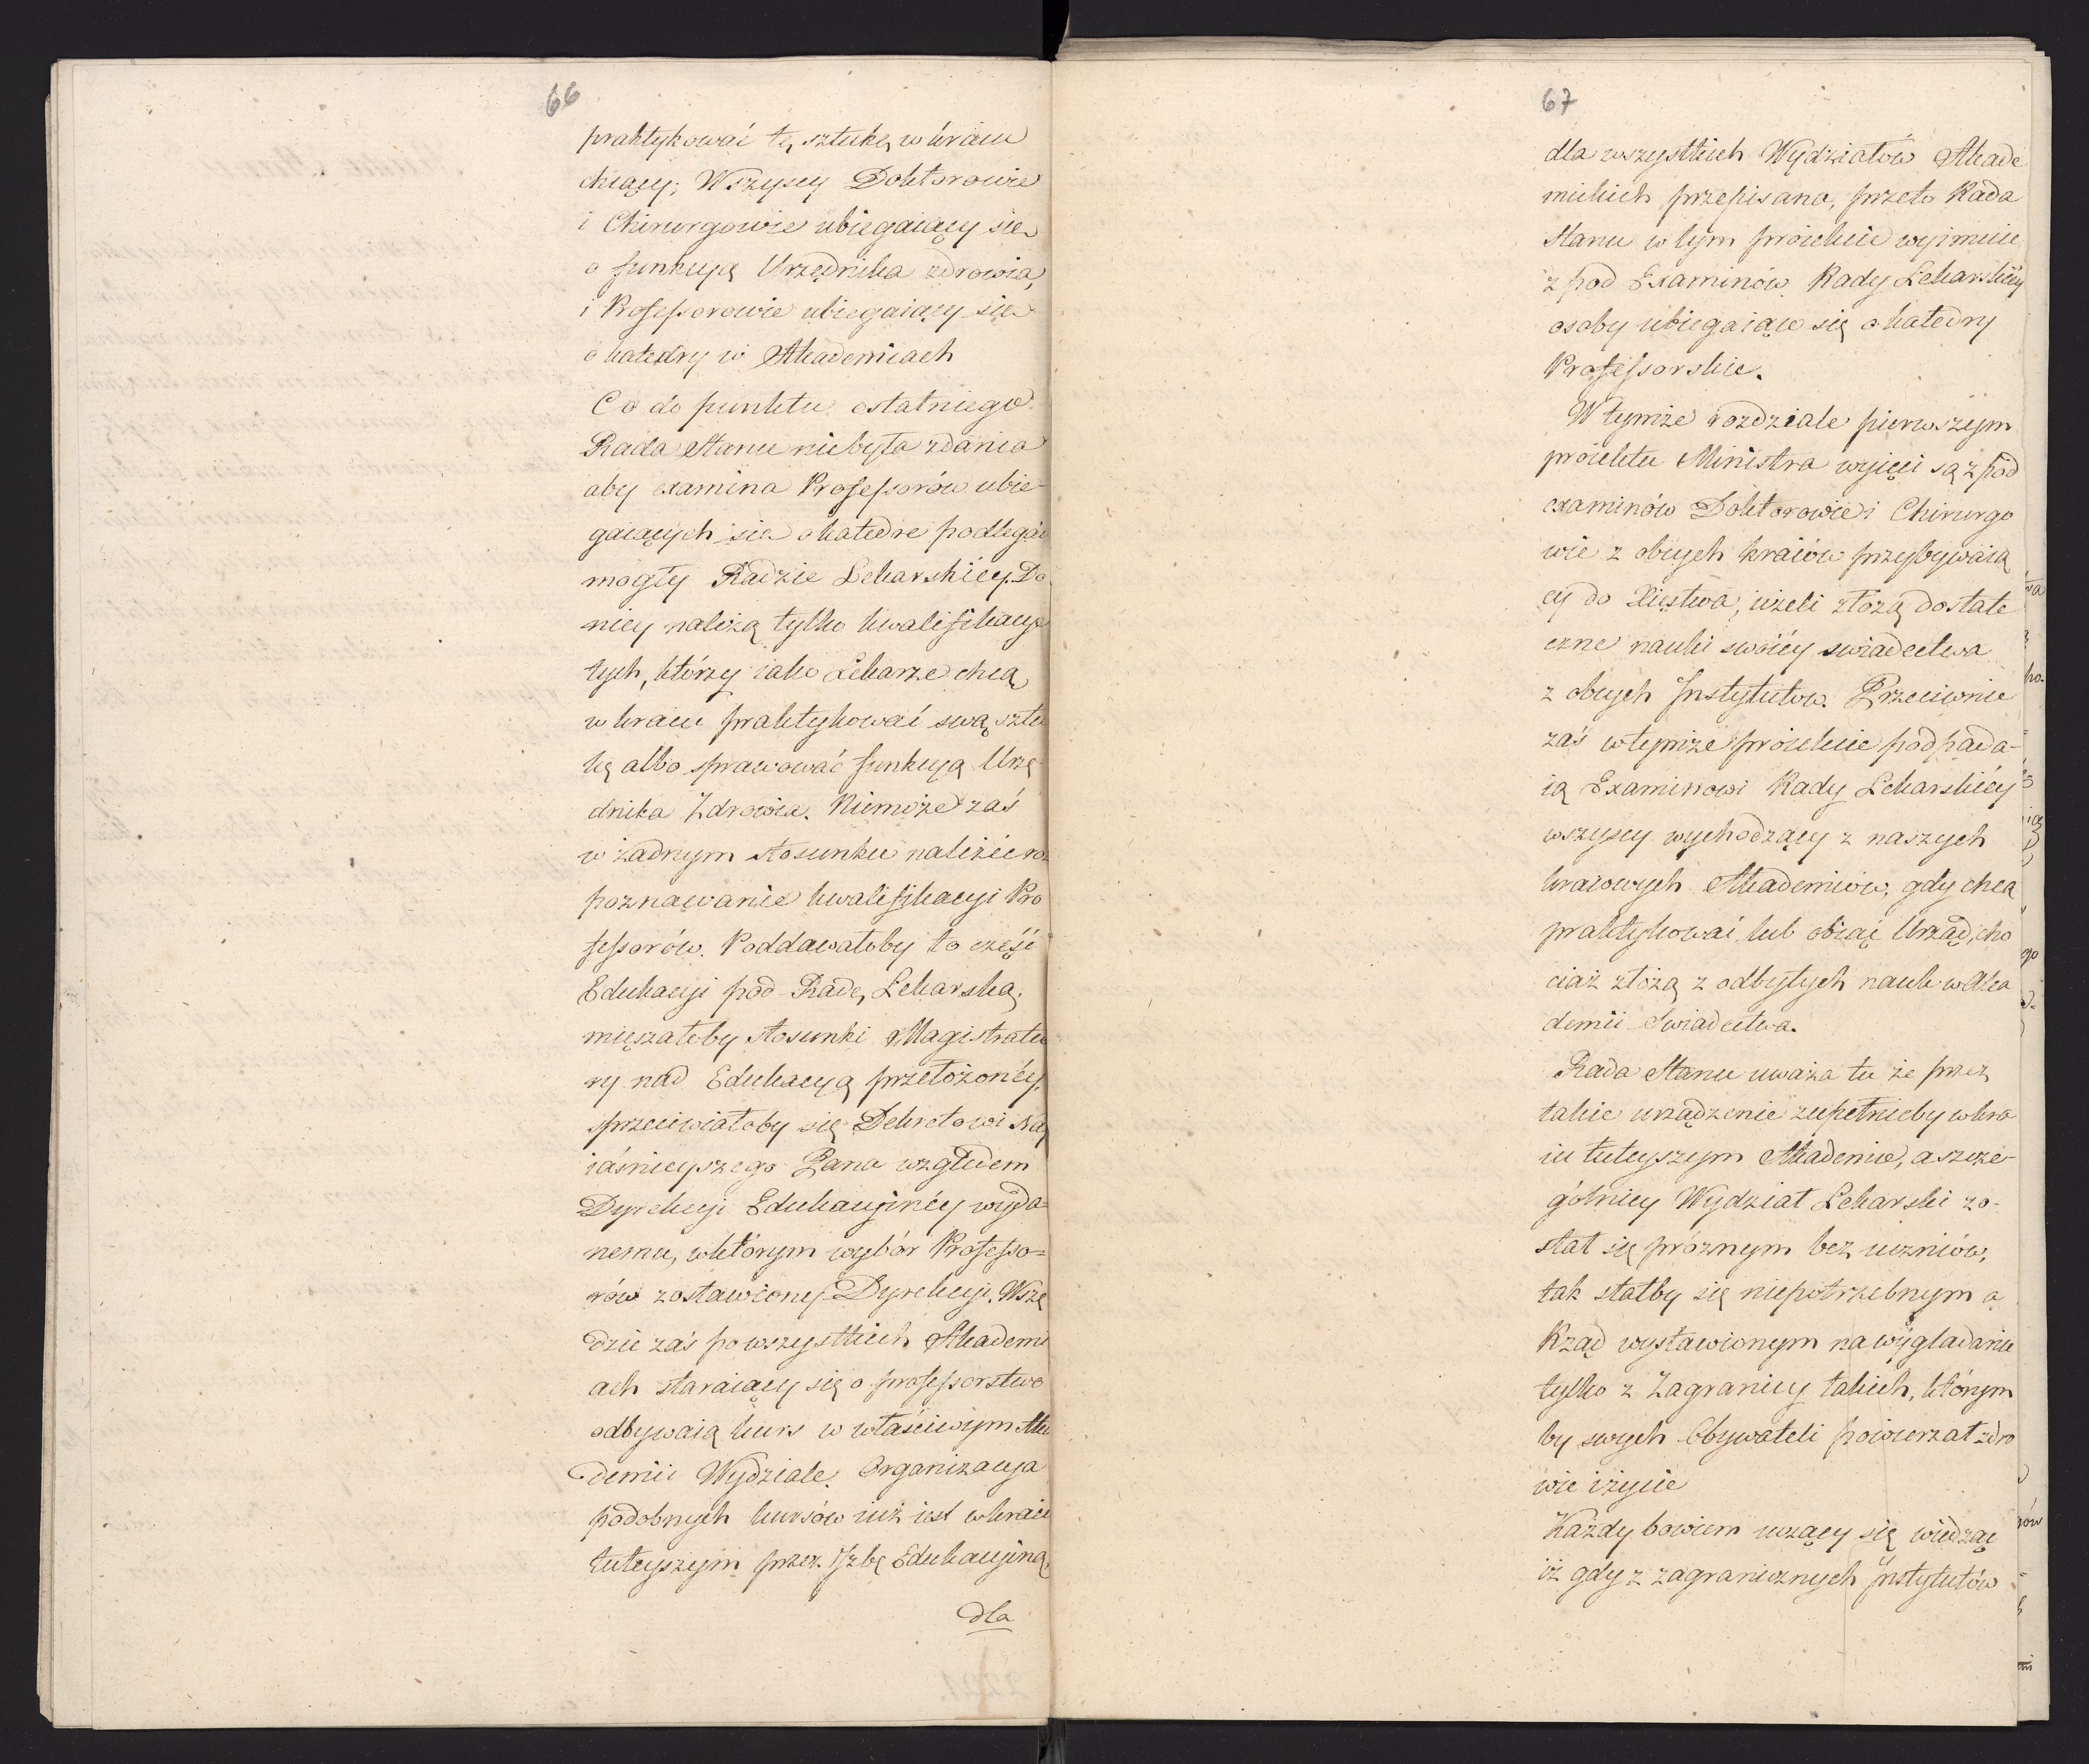 66
praktykować tę sztukę w kraiu
chcący; Wszyscy Doktorowie
i Chirurgowie ubiegaiący się
o funkcyą Urzędnika zdrowia,
i Professorowie ubiegaiący się
o katedry w Akademiach
Co do punktu ostatniego
Rada Stanu niebyła zdania
aby examina Professorów ubie-
gaiących się o katedre podlegać
mogły Radzie Lekarskiey. Do
niey należą tylko kwalifikacye
tych, którzy iako Lekarze chcą
w kraiu praktykować swą sztu
kę albo sprawować funkcyą Urzę
dnika Zdrowia. Niemoże zaś
w żadnym stosunku należeć roz
poznawanie kwalifikacyi Pro
fessorów. Poddawałoby to część
Edukacyi pod Radę Lekarską,
mięszałoby stosunki Magistratu
ry nad Edukacyą przełożonéy,
sprzeciwiałoby się Dekretowi Nay
iaśnieyszego Pana względem
Dyrekcyi Edukacyinéy wyda-
nemu, w którym wybór Professo=
rów zostawiony Dyrekcyi. Wszę
dzie zaś po wszystkich Akademi
ach staraiący się o professorstwo
odbywaią kurs w właściwym Aka
demii Wydziale. Organizacya
podobnych kursów iuż iest w kraiu
tuteyszym przez Izbę Edukacyiną
dla
67
dla wszystkich Wydziałów Akade
mickich przepisana, przeto Rada
Stanu w tym proiekcie wyimuie
z pod Examinów Rady Lekarskiéy
osoby ubiegaiące się o katedry
Professorskie.
W tymże rozdziale pierwszym
proiektu Ministra wyięci są z pod
examinów Doktorowie i Chirurgo
wie z obcych kraiów przybywaią
cy do Xięstwa, ieżeli złożą dostate
czne nauki swoiéy swiadectwa
z obcych Instytutow. Przeciwnie
zaś w tymże proiekcie podpada-
ią Examinowi Rady Lekarskiéy
wszyscy wychodzący z naszych
kraiowych Akademiów, gdy chcą
praktykować lub obiąć Urząd, cho
ciaż złożą z odbytych nauk w Aka
demii Swiadectwa.
Rada Stanu uważa tu że przez
takie urządzenie zupełnieby w kra
iu tuteyszym Akademie, a szcze-
gólniey Wydział Lekarski zo-
stał się próżnym bez uczniów,
tak stałby się niepotrzebnym a
Rząd wystawionym na wyglądanie
tylko z Zagranicy takich, którym
by swych Obywateli powierzał zdro
wie i życie
Każdy bowiem uczący się wiedząc
iż gdy z zagranicznych Instytutów